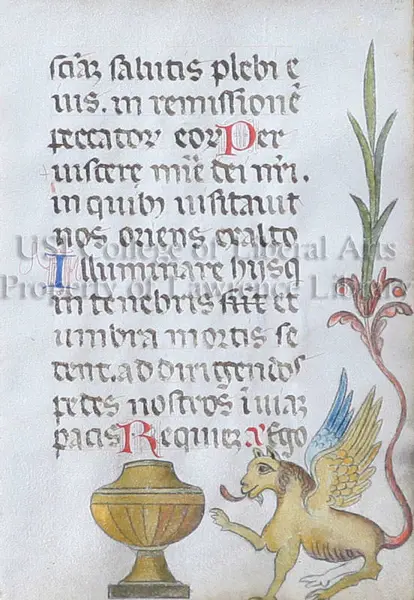 sciaʒ salutis plebi e
ius. in remissionē
peccatoʀ eoʀ Per
uiscere mīe dei nr̄i.
in quibꝫ uisitauit
nos oriens exalto
Illuminare hiisq
in tenebris et
umbra mortis se
dent. ad dirigendos
pedes nostros ī uiaʒ
pacis Requiē Ego
USC College of Liberal Arts
Property of Lawrence Library